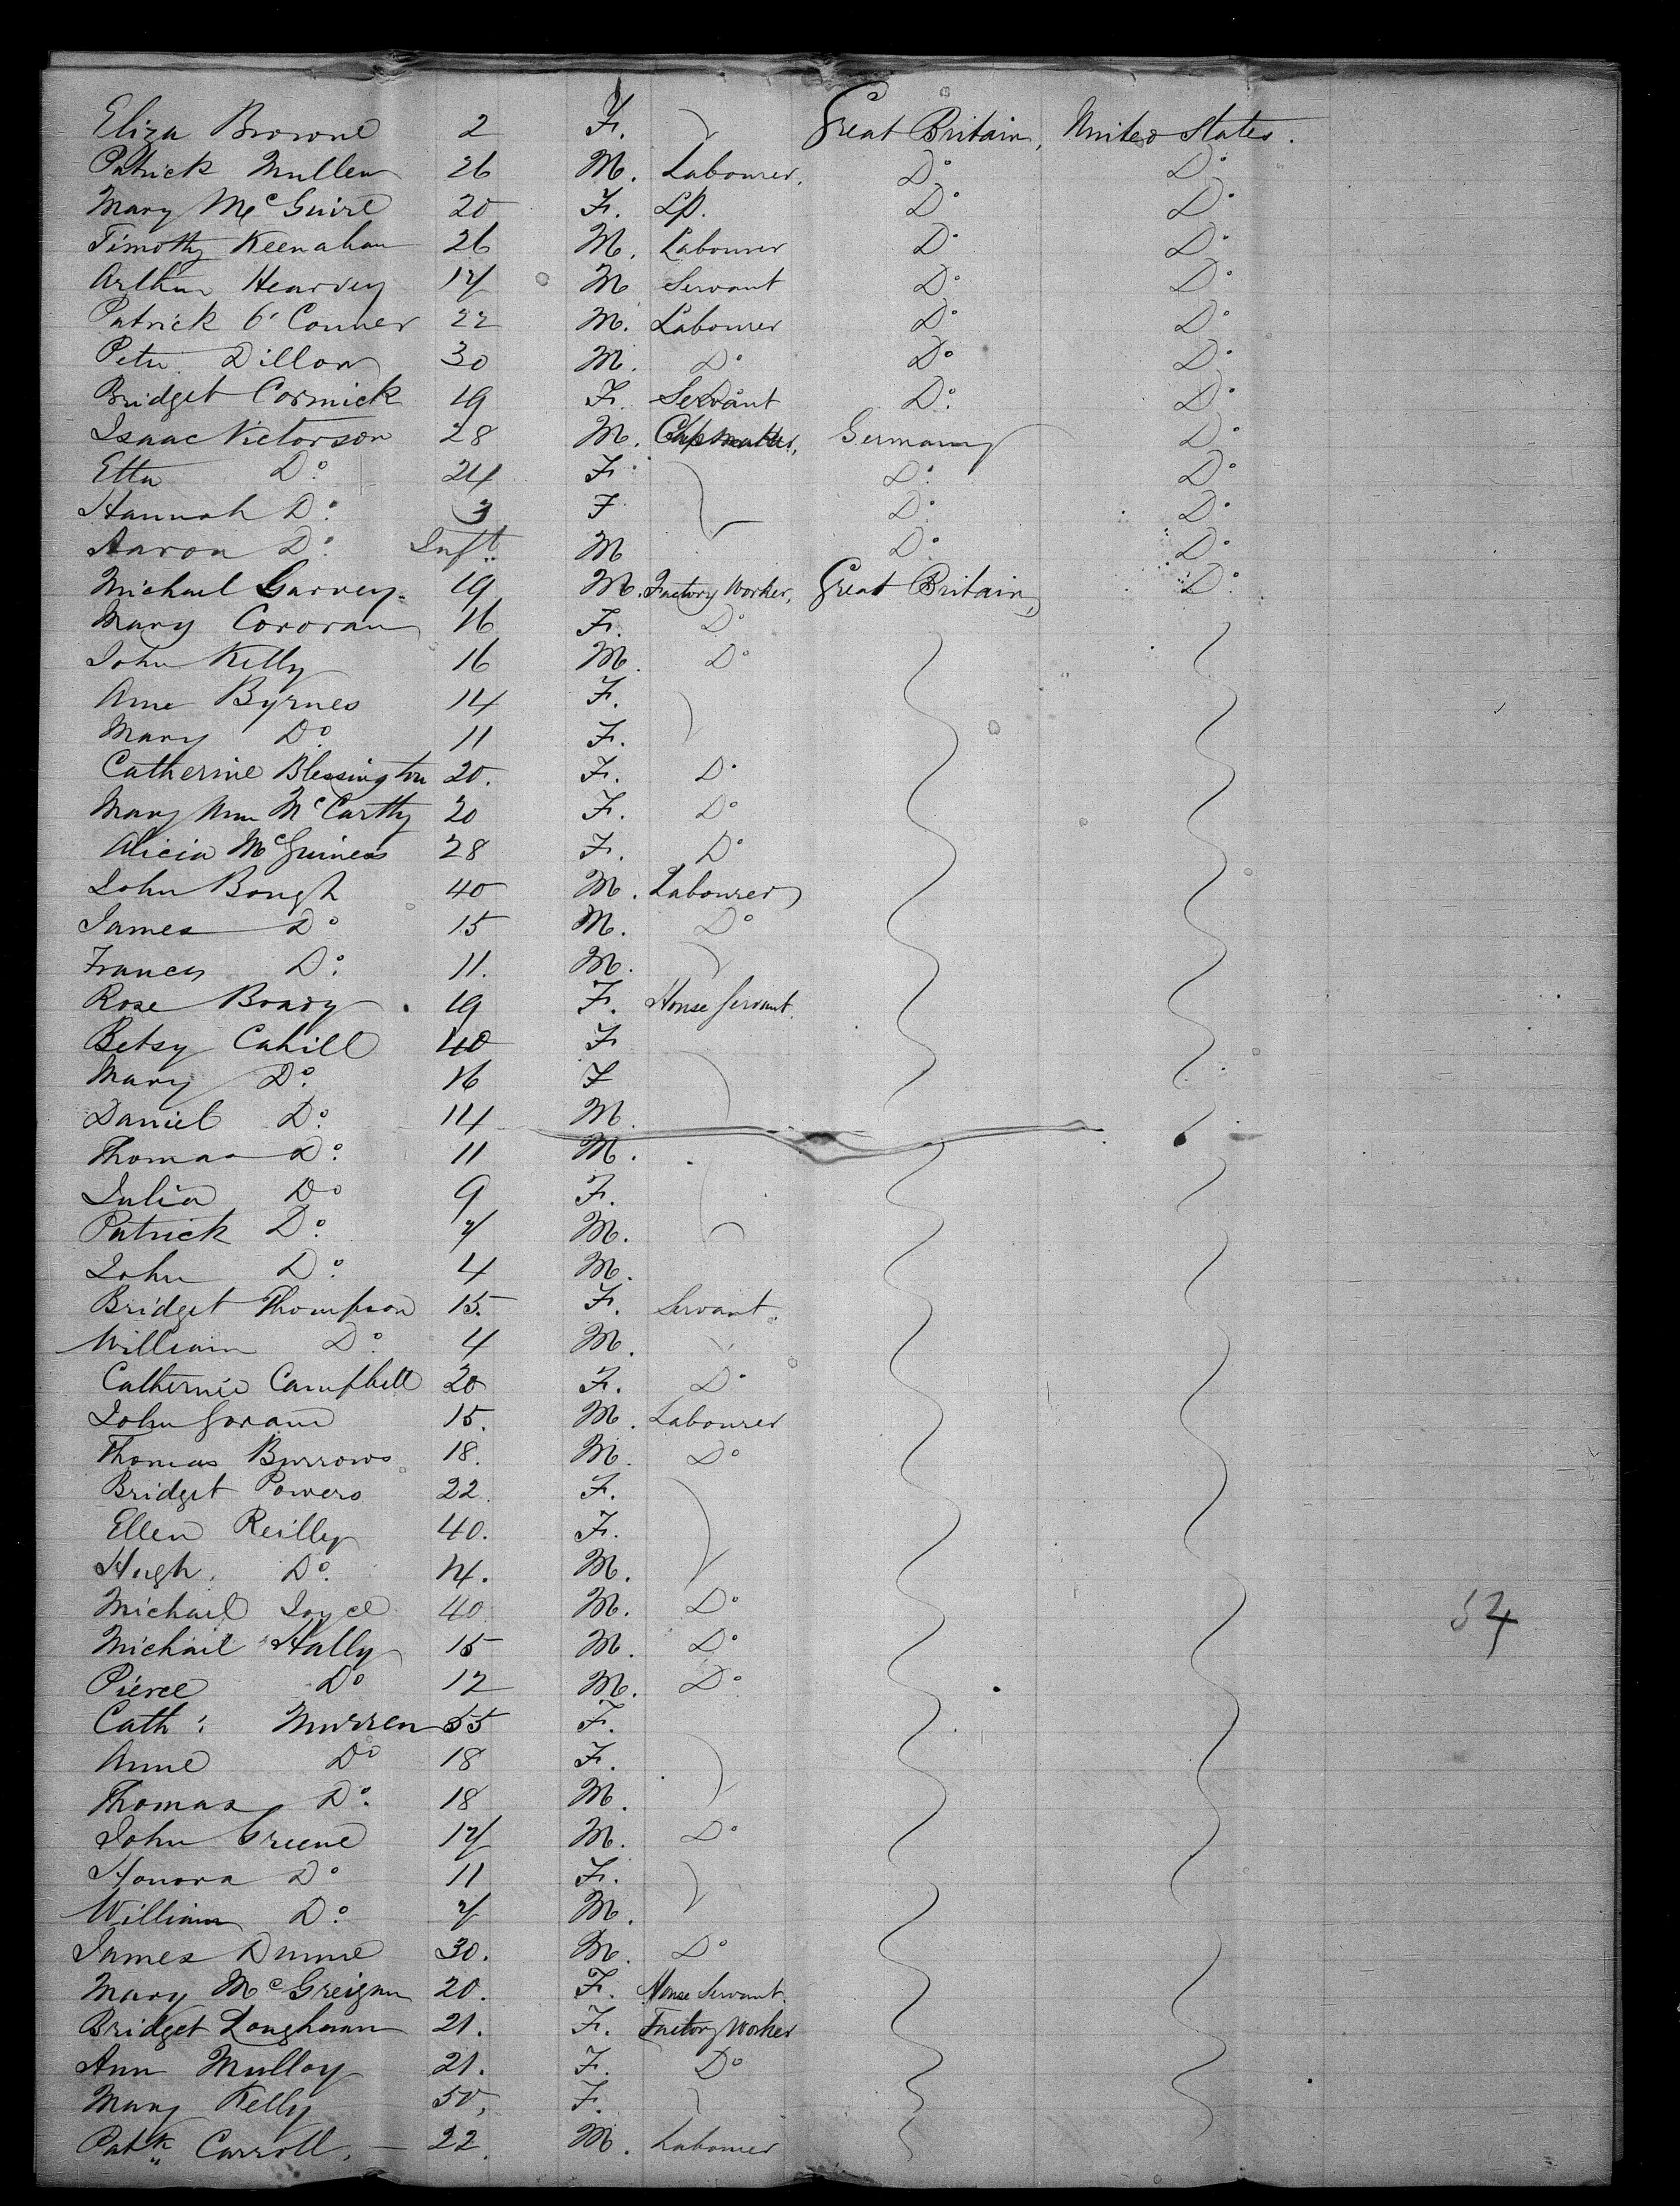 Eliza Browne 2 F. Great Britain, United States.
Patrick Mullen 26 M. Labourer, Do Do
Mary McGuire 20 F. Sp. Do Do
Timothy Keenahan 26 M. Labourer Do Do
Arthur Hearvey 17 M Servant Do Do
Patrick O'Conner 22 M. Labourer Do Do
Peter Dillon 30 M. Do Do Do
Bridget Cormick 19 F. Servant Do. Do
Isaac Victorson 28 M. Germany Do
Etta Do 24 F Do. Do
Hannah Do. 3 F Do. Do
Aaron Do. Inft. M Do. Do
Michael Garvey 19 M. Factory Worker, Great Britain, Do.
Mary Cororan 16 F. Do
John Kelly 16 M. Do
Ane Byrnes 14 F.
Mary Do 11 F.
Catherine Blessington 20. F. Do
Mary Ann McCartty 20 F. Do
Alicia McGuiness 28 F. Do
John Bough 40 M. Labourer
James Do 15 M. Do
Frances Do. 11. M.
Rose Brady 19 F. House Servant.
Betsy Cahill 40 F
Mary Do. 16 F
Daniel Do. 14 M.
Thomas Do. 11 M.
Julia Do 9 F.
Patrick Do. 7 M.
John Do. 4 M.
Bridget Thompson 15. F. Servant.
William Do. 4 M.
Catherine Campbell 20 F. Do
John Goram 15. M. Labourer
Thomas Burrows 18. M. Do
Bridget Powers 22. F.
Ellen Reilly 40. F.
Hugh. Do. 4. M.
Michael Joyce 40 M. Do
Michael Hally 15 M. Do
Pierce Do 12 M. Do
Cath: Murren 55 F.
Anne Do 18 F.
Thomas Do. 18 M.
John Greene 17 M. Do
Honora Do 11 F.
William Do. 7 M.
James Dunne 30. M. Do
Mary McGreignn 20. F. House Servant.
Bridget Loughman 21. F. Factory Worker
Ann Mulloy 21. F. Do
Mary Kelly 50, F.
Patk Carroll, 22. M. Labourer
54